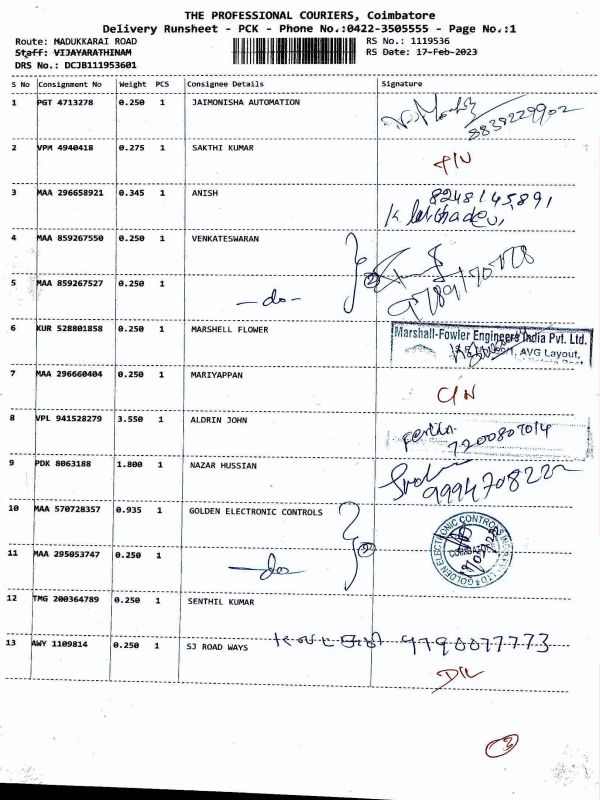 THE PROFESSIONAL COURIERS, Coimbatore
Delivery Runsheet - PCK - Phone No.:0422-3505555 - Page No.:1
Route: MADUKKARAI ROAD RS No.: 1119536
Staff: VIJAYARATHINAM RS Date: 17-Feb-2023
DRS No.: DCJB111953601
S No Consignment No Weight PCS Consignee Details Signature
1 PGT 4713278 0.250 1 JAIMONISHA AUTOMATION
8838229902
2 VPM 4940418 0.275 1 SAKTHI KUMAR
3 MAA 296658921 0.345 1 ANISH 8248145891
4 MAA 859267550 0.250 1 VENKATESWARAN
5 MAA 859267527 0.250 1 -do- 2
6 KUR 528801858 0.250 1 MARSHELL FLOWER Marshall-Fowler Engineers India Pvt. Ltd.
AVG Layout,
7 MAA 296660404 0.250 1 MARIYAPPAN
C/N
8 VPL 941528279 3.550 1 ALDRIN JOHN
7200807014
9 PDK 8063188 1.800 1 NAZAR HUSSIAN
10 MAA 570728357 0.935 1 GOLDEN ELECTRONIC CONTROLS
11 MAA 295053747 0.250 1 -do- 2
12 TMG 200364789 0.250 1 SENTHIL KUMAR
13 AWY 1109814 0.250 1 SJ ROAD WAYS 9790077773